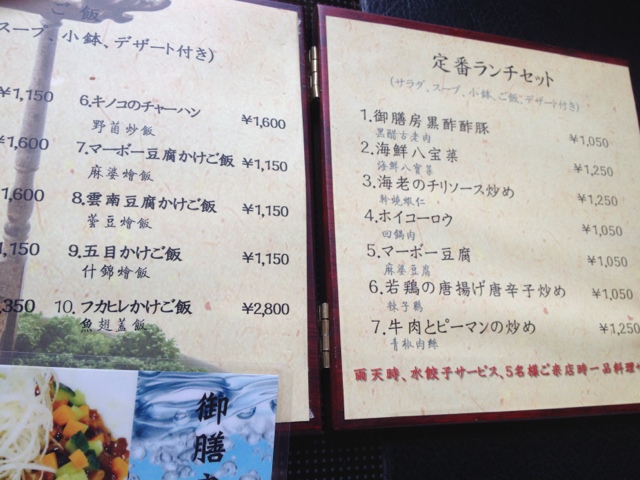 ご飯
スープ、小鉢、デザート付き)
¥1,150
6.キノコのチャーハン ¥1,600
野菌炒飯
7.マーボー豆腐かけご飯 ¥1,150
麻婆燴飯
¥1,600
8.雲南豆腐かけご飯 ¥1,150
蕓豆燴飯
¥1,150
9.五目かけご飯 ¥1,150
什錦燴飯
,350
10.フカヒレかけご飯 ¥2,800
魚翅蓋飯
御膳
定番ランチセット
(サラダ、スープ、小鉢、ご飯、デザート付き)
1.御膳房黒酢酢豚 ¥1,050
黒醋古老肉
2.海鮮八宝菜 ¥1,250
海鮮八寶菜
3.海老のチリソース炒め ¥1,250
幹燒蝦仁
4.ホイコーロウ ¥1,050
回鍋肉
5.マーボー豆腐 ¥1,050
麻婆豆腐
6.若鶏の唐揚げ唐辛子炒め ¥1,050
辣子鶏
7.牛肉とピーマンの炒め ¥1,250
青椒肉絲
雨天時、水餃子サービス、5名様ご来店時一品料理サ